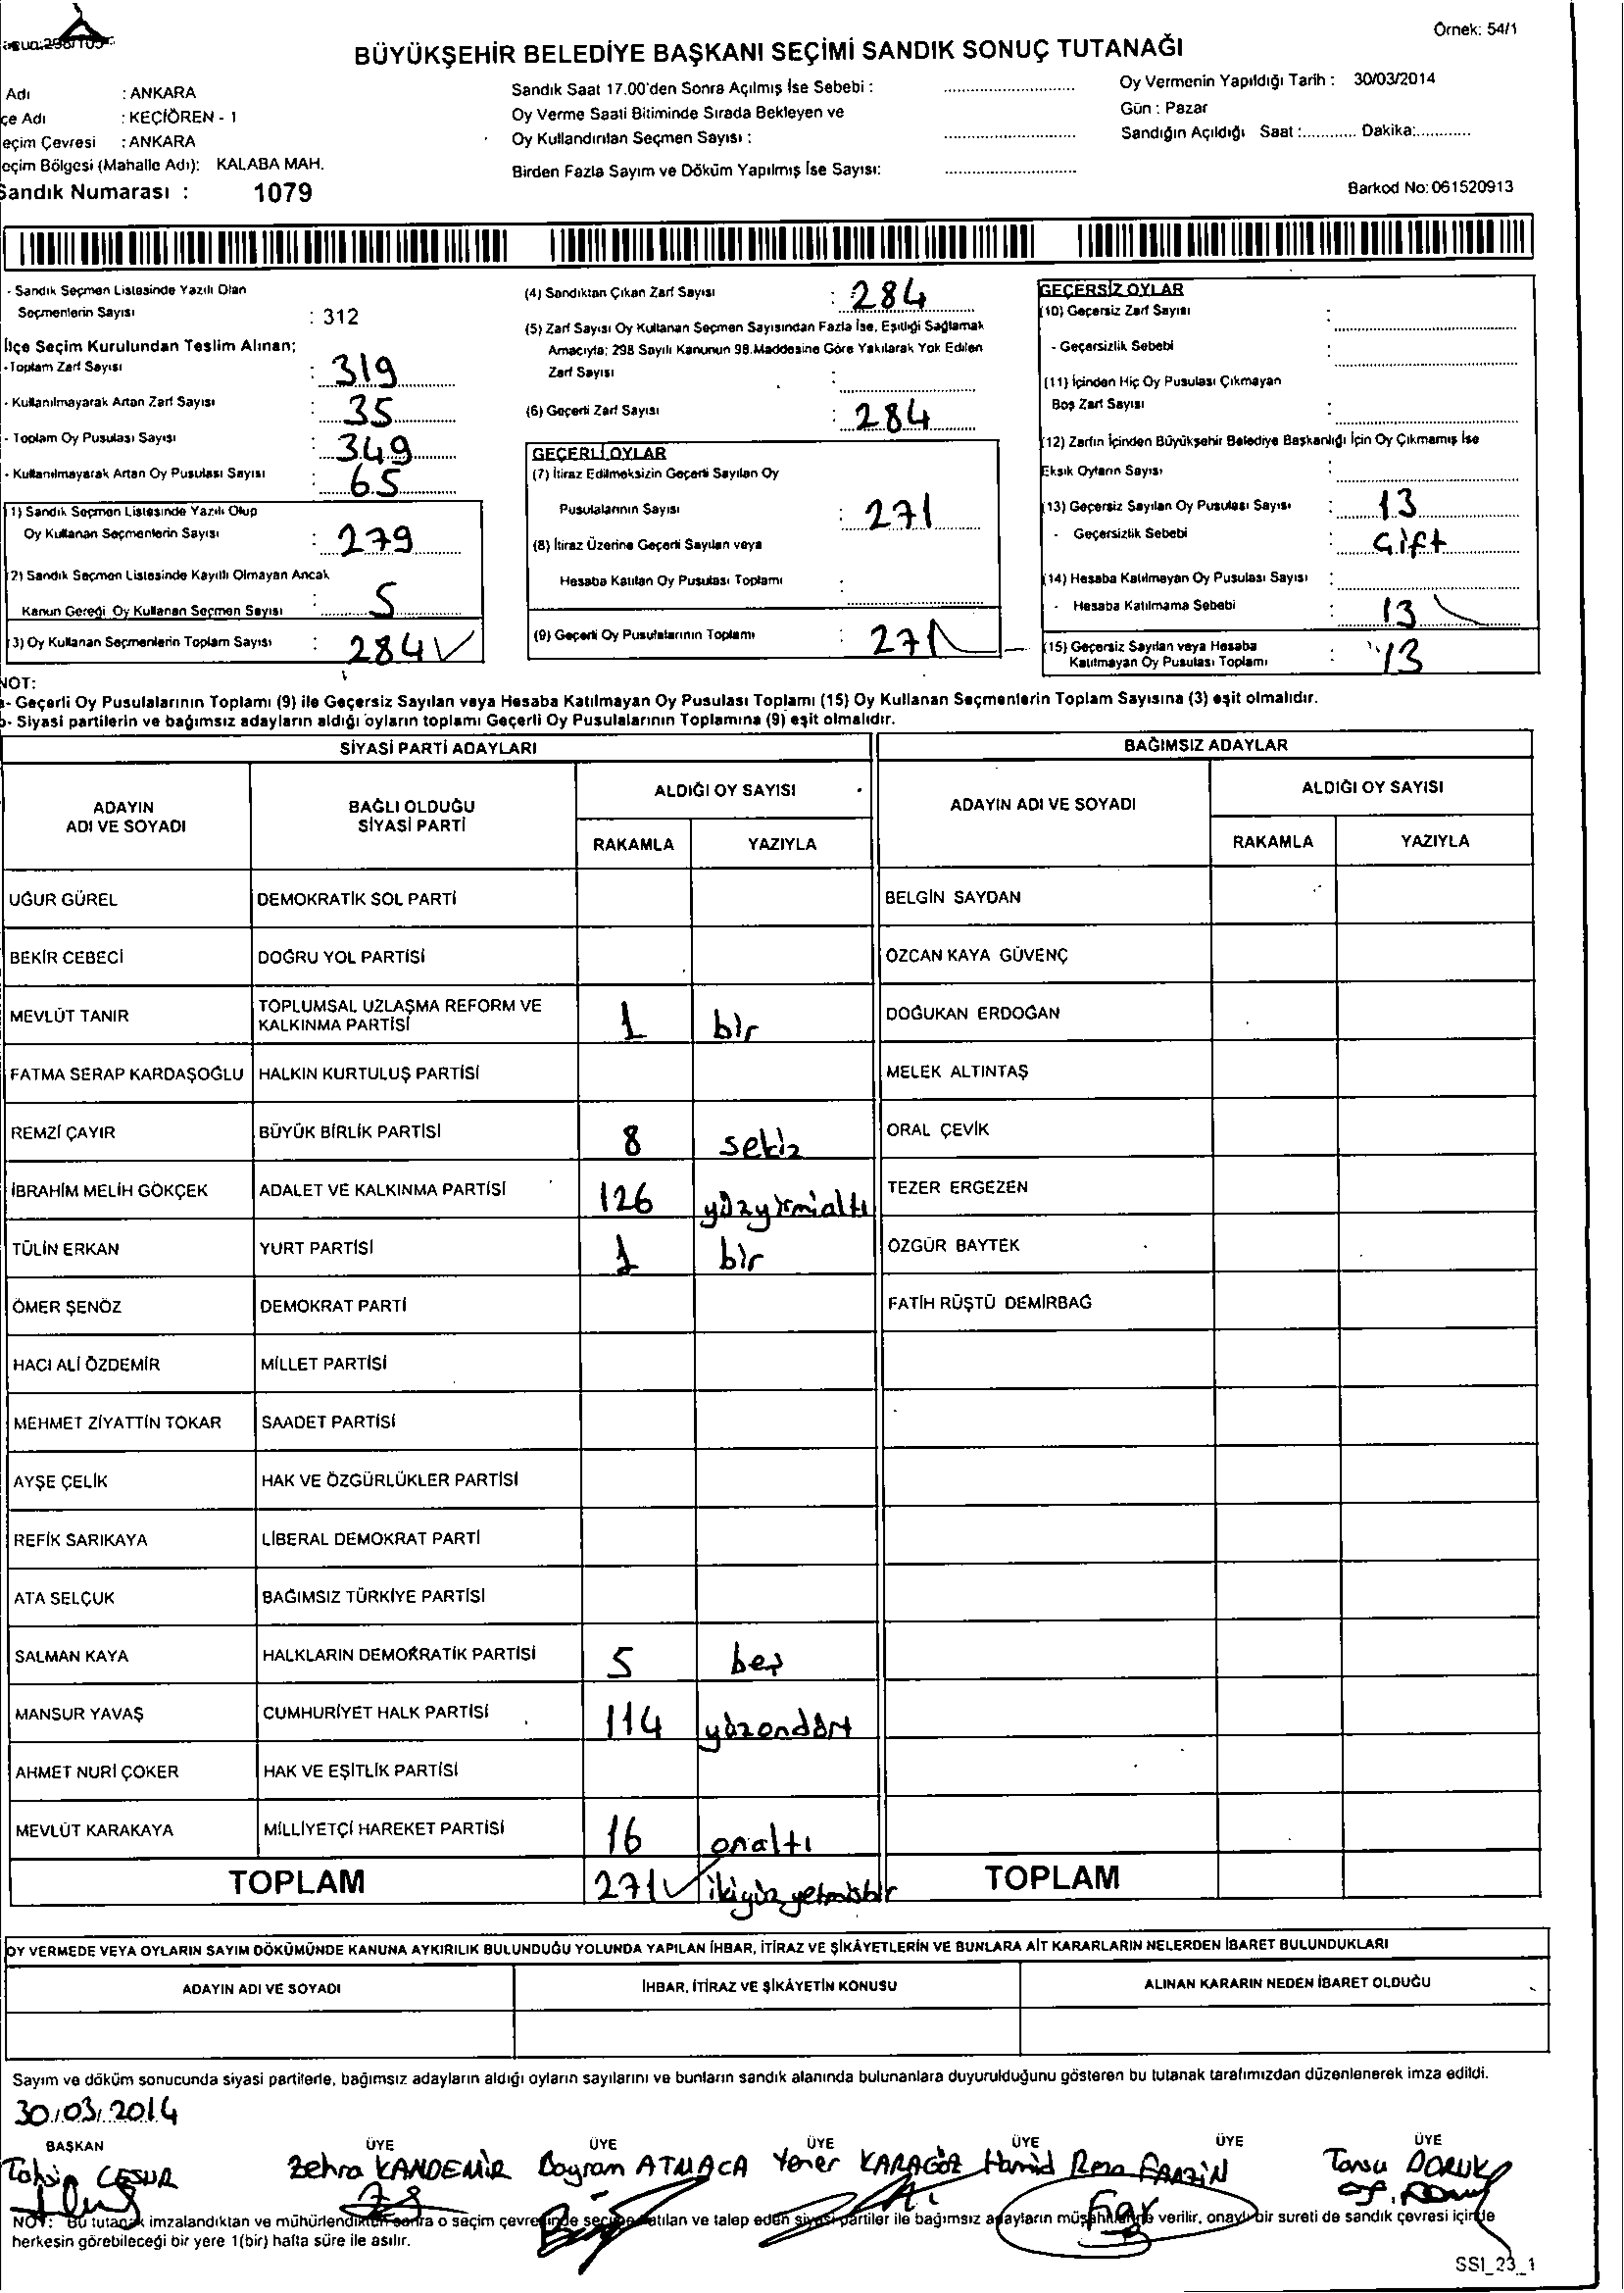 Örnek: 54/1
BÜYÜKŞEHİR BELEDİYE BAŞKANI SEÇİMİ SANDIK SONUÇ TUTANAĞI
Adı : ANKARA
çe Adı : KEÇİÖREN - 1
eçim Çevresi : ANKARA
eçim Bölgesi (Mahalle Adı): KALABA MAH.
Sandık Numarası : 1079
Sandık Saat 17.00'den Sonra Açılmış İse Sebebi :
Oy Verme Saati Bitiminde Sırada Bekleyen ve
Oy Kullandırılan Seçmen Sayısı :
Birden Fazla Sayım ve Döküm Yapılmış İse Sayısı:
Oy Vermenin Yapıldığı Tarih : 30/03/2014
Gün : Pazar
Sandığın Açıldığı Saat :............ Dakika:...........
Barkod No: 061520913
- Sandık Seçmen Listesinde Yazılı Olan
Seçmenlerin Sayısı : 312
İlçe Seçim Kurulundan Teslim Alınan;
-Toplam Zarf Sayısı : 319
- Kullanılmayarak Artan Zarf Sayısı : 35
- Toplam Oy Pusulası Sayısı : 349
- Kullanılmayarak Artan Oy Pusulası Sayısı : 65
1) Sandık Seçmen Listesinde Yazılı Olup
Oy Kullanan Seçmenlerin Sayısı : 279
2) Sandık Seçmen Listesinde Kayıtlı Olmayan Ancak
Kanun Gereği Oy Kullanan Seçmen Sayısı : 5
3) Oy Kullanan Seçmenlerin Toplam Sayısı : 284
(4) Sandıktan Çıkan Zarf Sayısı : 284
(5) Zarf Sayısı Oy Kullanan Seçmen Sayısından Fazla İse, Eşitliği Sağlamak
Amacıyla; 298 Sayılı Kanunun 98.Maddesine Göre Yakılarak Yok Edilen
Zarf Sayısı :
(6) Geçerli Zarf Sayısı : 284
GEÇERLİ OYLAR
(7) İtiraz Edilmeksizin Geçerli Sayılan Oy
Pusulalarının Sayısı : 271
(8) İtiraz Üzerine Geçerli Sayılan veya
Hesaba Katılan Oy Pusulası Toplamı :
(9) Geçerli Oy Pusulalarının Toplamı : 271
GEÇERSİZ OYLAR
(10) Geçersiz Zarf Sayısı :
- Geçersizlik Sebebi :
(11) İçinden Hiç Oy Pusulası Çıkmayan
Boş Zarf Sayısı :
(12) Zarfın İçinden Büyükşehir Belediye Başkanlığı İçin Oy Çıkmamış İse
Eksik Oyların Sayısı :
(13) Geçersiz Sayılan Oy Pusulası Sayısı : 13
- Geçersizlik Sebebi : Çift
(14) Hesaba Katılmayan Oy Pusulası Sayısı :
- Hesaba Katılmama Sebebi : 13
(15) Geçersiz Sayılan veya Hesaba
Katılmayan Oy Pusulası Toplamı : 13
NOT:
a- Geçerli Oy Pusulalarının Toplamı (9) ile Geçersiz Sayılan veya Hesaba Katılmayan Oy Pusulası Toplamı (15) Oy Kullanan Seçmenlerin Toplam Sayısına (3) eşit olmalıdır.
b- Siyasi partilerin ve bağımsız adayların aldığı oyların toplamı Geçerli Oy Pusulalarının Toplamına (9) eşit olmalıdır.
SİYASİ PARTİ ADAYLARI BAĞIMSIZ ADAYLAR
ADAYIN ADI VE SOYADI BAĞLI OLDUĞU SİYASİ PARTİ ALDIĞI OY SAYISI ADAYIN ADI VE SOYADI ALDIĞI OY SAYISI
RAKAMLA YAZIYLA RAKAMLA YAZIYLA
UĞUR GÜREL DEMOKRATİK SOL PARTİ BELGİN SAYDAN
BEKİR CEBECİ DOĞRU YOL PARTİSİ ÖZCAN KAYA GÜVENÇ
MEVLÜT TANIR TOPLUMSAL UZLAŞMA REFORM VE KALKINMA PARTİSİ 1 bir DOĞUKAN ERDOĞAN
FATMA SERAP KARDAŞOĞLU HALKIN KURTULUŞ PARTİSİ MELEK ALTINTAŞ
REMZİ ÇAYIR BÜYÜK BİRLİK PARTİSİ 8 sekiz ORAL ÇEVİK
İBRAHİM MELİH GÖKÇEK ADALET VE KALKINMA PARTİSİ 126 yüzyirmialtı TEZER ERGEZEN
TÜLİN ERKAN YURT PARTİSİ 1 bir ÖZGÜR BAYTEK
ÖMER ŞENÖZ DEMOKRAT PARTİ FATİH RÜŞTÜ DEMİRBAĞ
HACI ALİ ÖZDEMİR MİLLET PARTİSİ
MEHMET ZİYATTİN TOKAR SAADET PARTİSİ
AYŞE ÇELİK HAK VE ÖZGÜRLÜKLER PARTİSİ
REFİK SARIKAYA LİBERAL DEMOKRAT PARTİ
ATA SELÇUK BAĞIMSIZ TÜRKİYE PARTİSİ
SALMAN KAYA HALKLARIN DEMOKRATİK PARTİSİ 5 beş
MANSUR YAVAŞ CUMHURİYET HALK PARTİSİ 114 yüzondört
AHMET NURİ ÇOKER HAK VE EŞİTLİK PARTİSİ
MEVLÜT KARAKAYA MİLLİYETÇİ HAREKET PARTİSİ 16 onaltı
TOPLAM 271 ikiyüzyetmişbir TOPLAM
OY VERMEDE VEYA OYLARIN SAYIM DÖKÜMÜNDE KANUNA AYKIRILIK BULUNDUĞU YOLUNDA YAPILAN İHBAR, İTİRAZ VE ŞİKÂYETLERİN VE BUNLARA AİT KARARLARIN NELERDEN İBARET BULUNDUKLARI
ADAYIN ADI VE SOYADI İHBAR, İTİRAZ VE ŞİKÂYETİN KONUSU ALINAN KARARIN NEDEN İBARET OLDUĞU
Sayım ve döküm sonucunda siyasi partilerle, bağımsız adayların aldığı oyların sayılarını ve bunların sandık alanında bulunanlara duyurulduğunu gösteren bu tutanak tarafımızdan düzenlenerek imza edildi.
30/03/2014
BAŞKAN ÜYE ÜYE ÜYE ÜYE ÜYE ÜYE
Tahsin CESUR Zehra KANDEMİR Bayram ATMACA Yener KARAGÖZ Hamid Reza FARZİN Tansu DORUK
NOT: Bu tutanak imzalandıktan ve mühürlendikten sonra o seçim çevresinde seçime katılan ve talep eden siyasi partiler ile bağımsız adayların müşahitlerine verilir, onaylı bir sureti de sandık çevresi içinde
herkesin görebileceği bir yere 1(bir) hafta süre ile asılır.
SSI_23_1